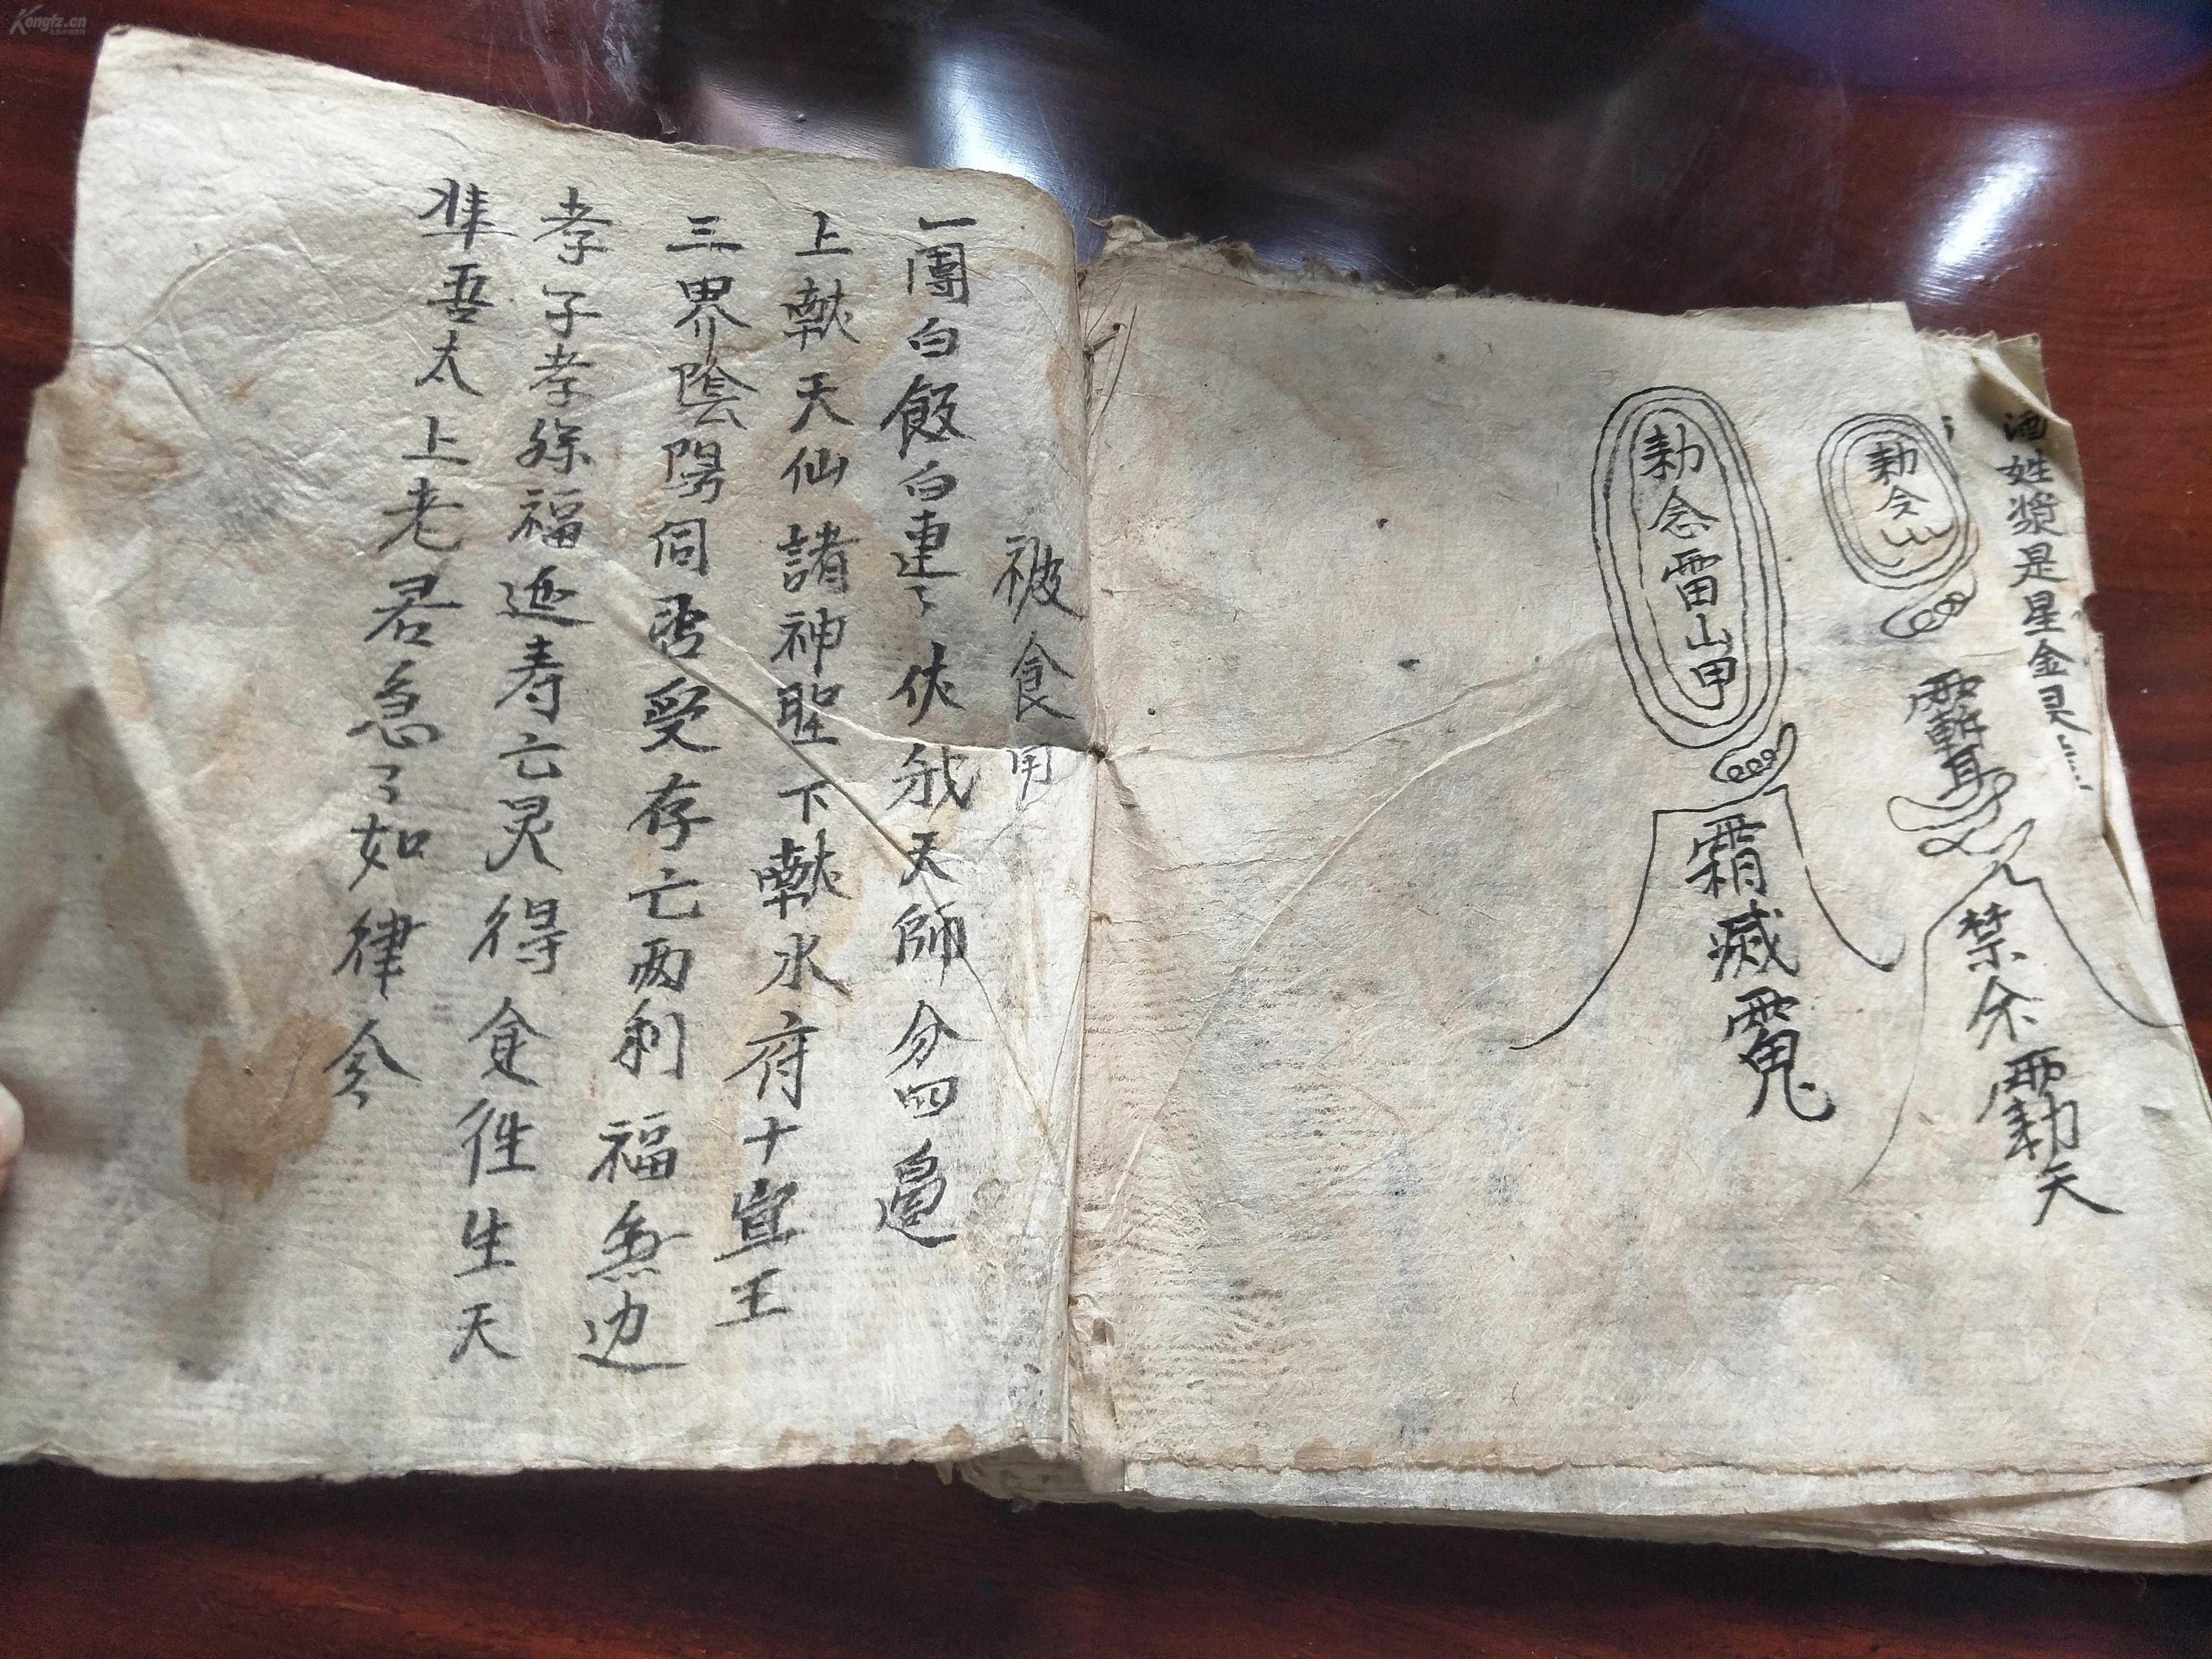 酒姓漿是星金灵
勅令山
禁
天
勅令雷山甲
霜滅
被食用
一團白飯白連了伏我天師分四邊
上献天仙諸神聖下献水府十宣王
三界陰陽同受存亡两利福無边
孝子孝孫福延寿亡灵得食往生天
准吾太上老君急了如律令
Kongfz.cn